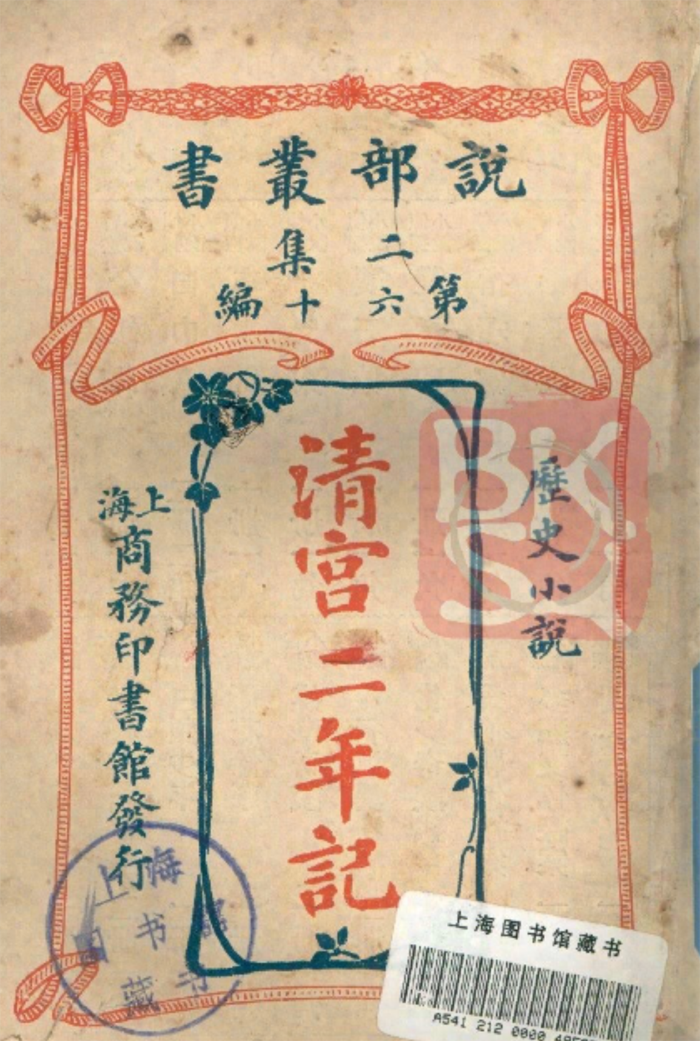 說部叢書
二集
第六十編
歷史小說
清宮二年記
上海
商務印書館發行
上海图书馆藏书
上海图书馆藏书
A541 212 0000
BK